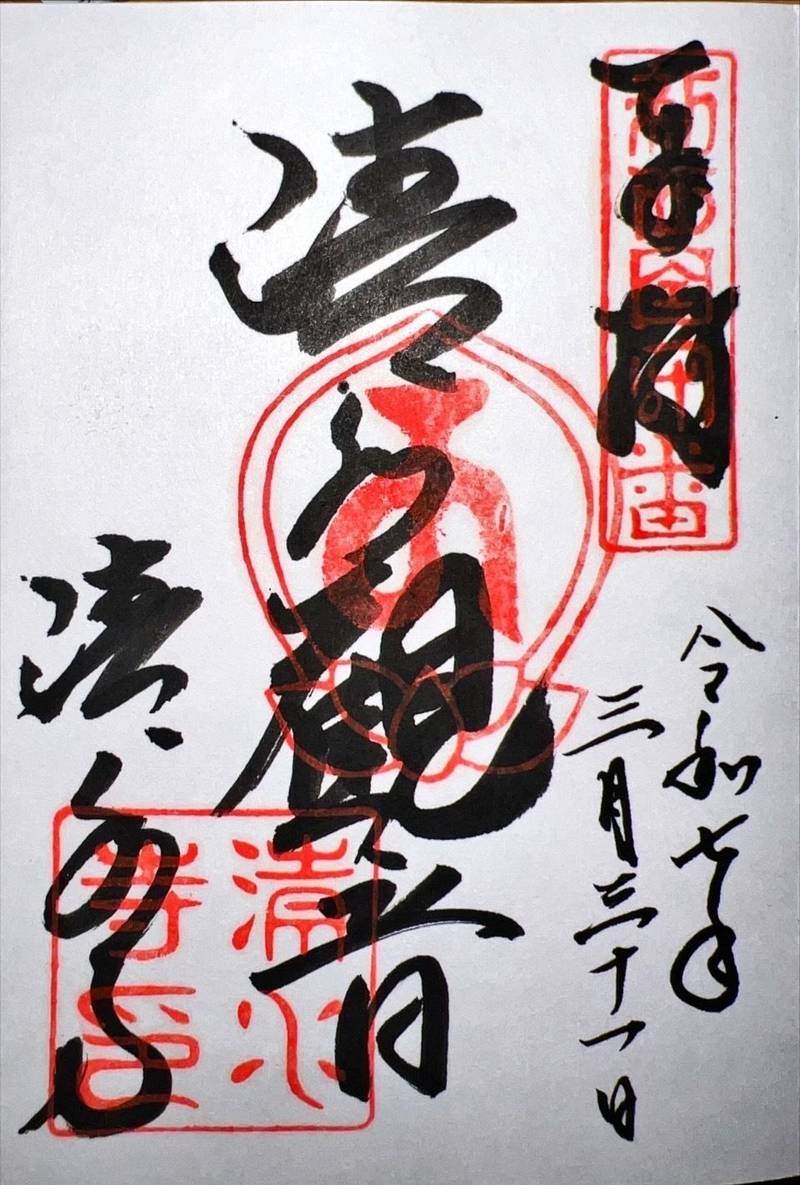 奉拝
令和七年
三月三十一日
清水観音
清水寺
清水寺印